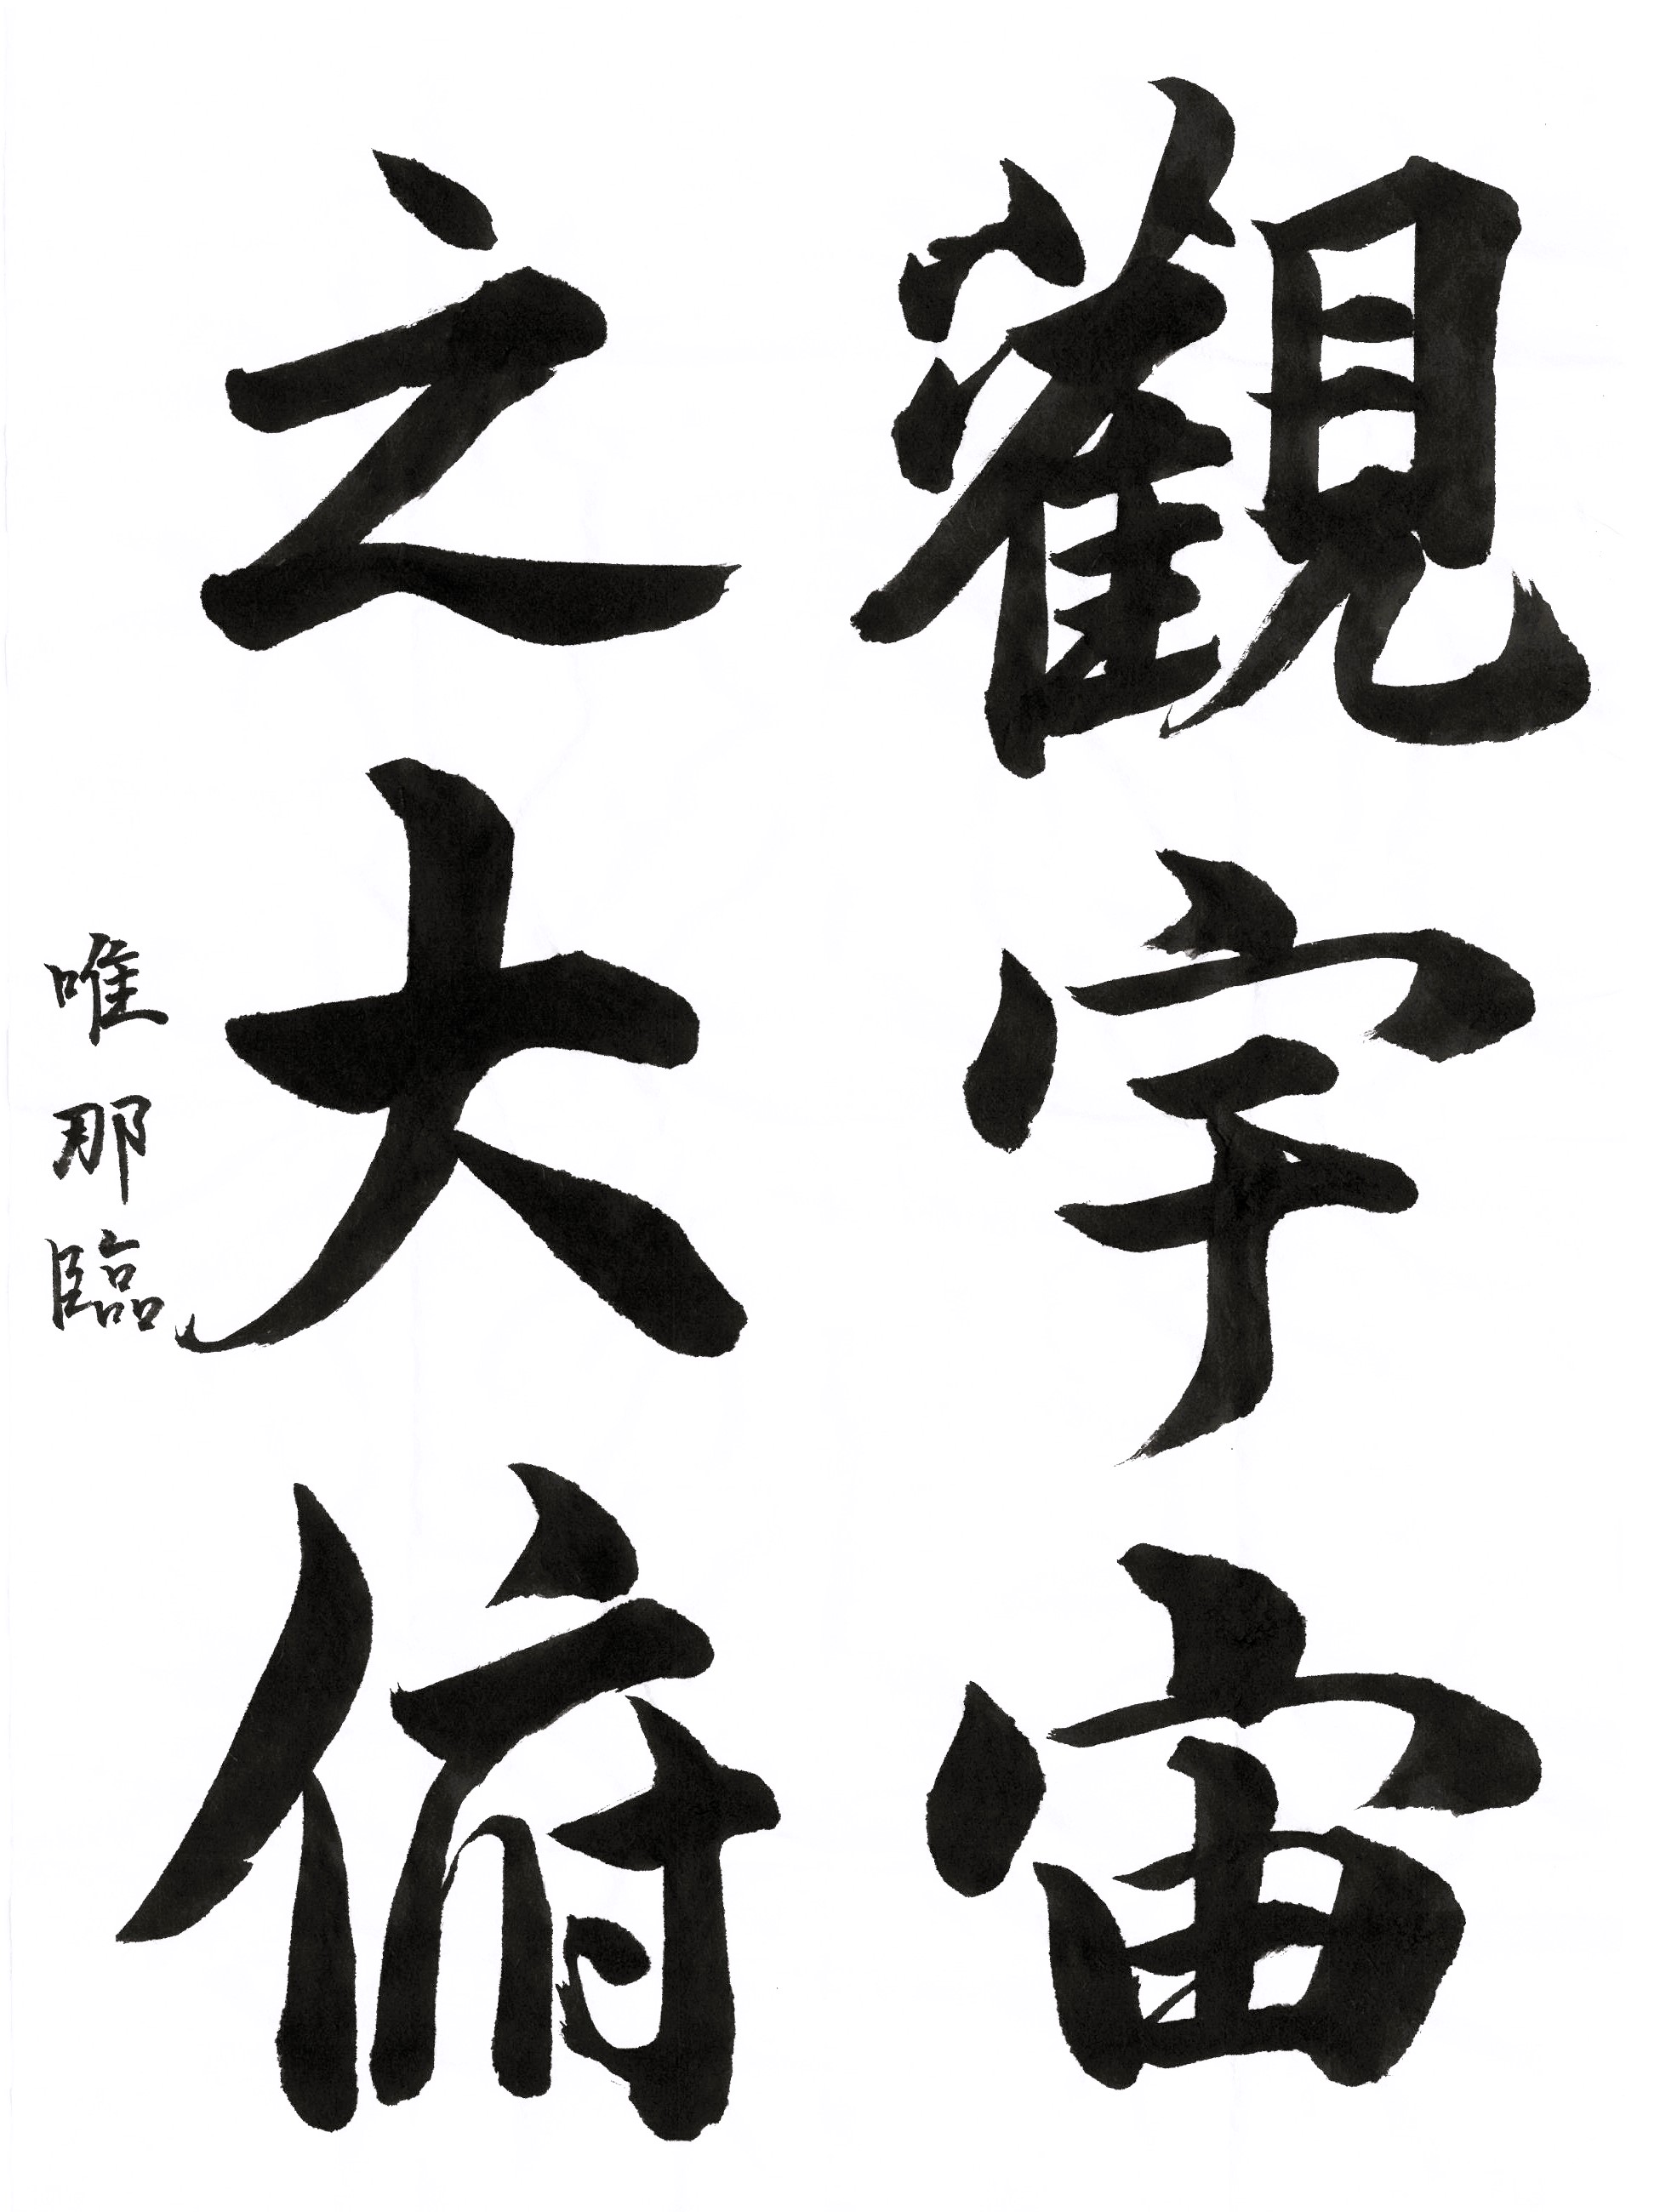 觀宇宙
之大俯
唯那臨